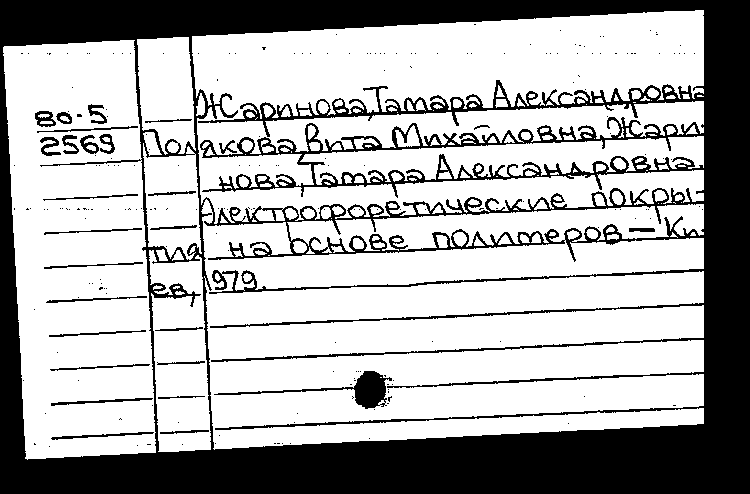 Жаринова, Тамара Александровна
80-5
2569 Полякова, Вита Михайловна, Жари-
нова, Тамара Александровна.
Электрофоретические покры-
тия на основе полимеров — Ки-
ев, 1979.